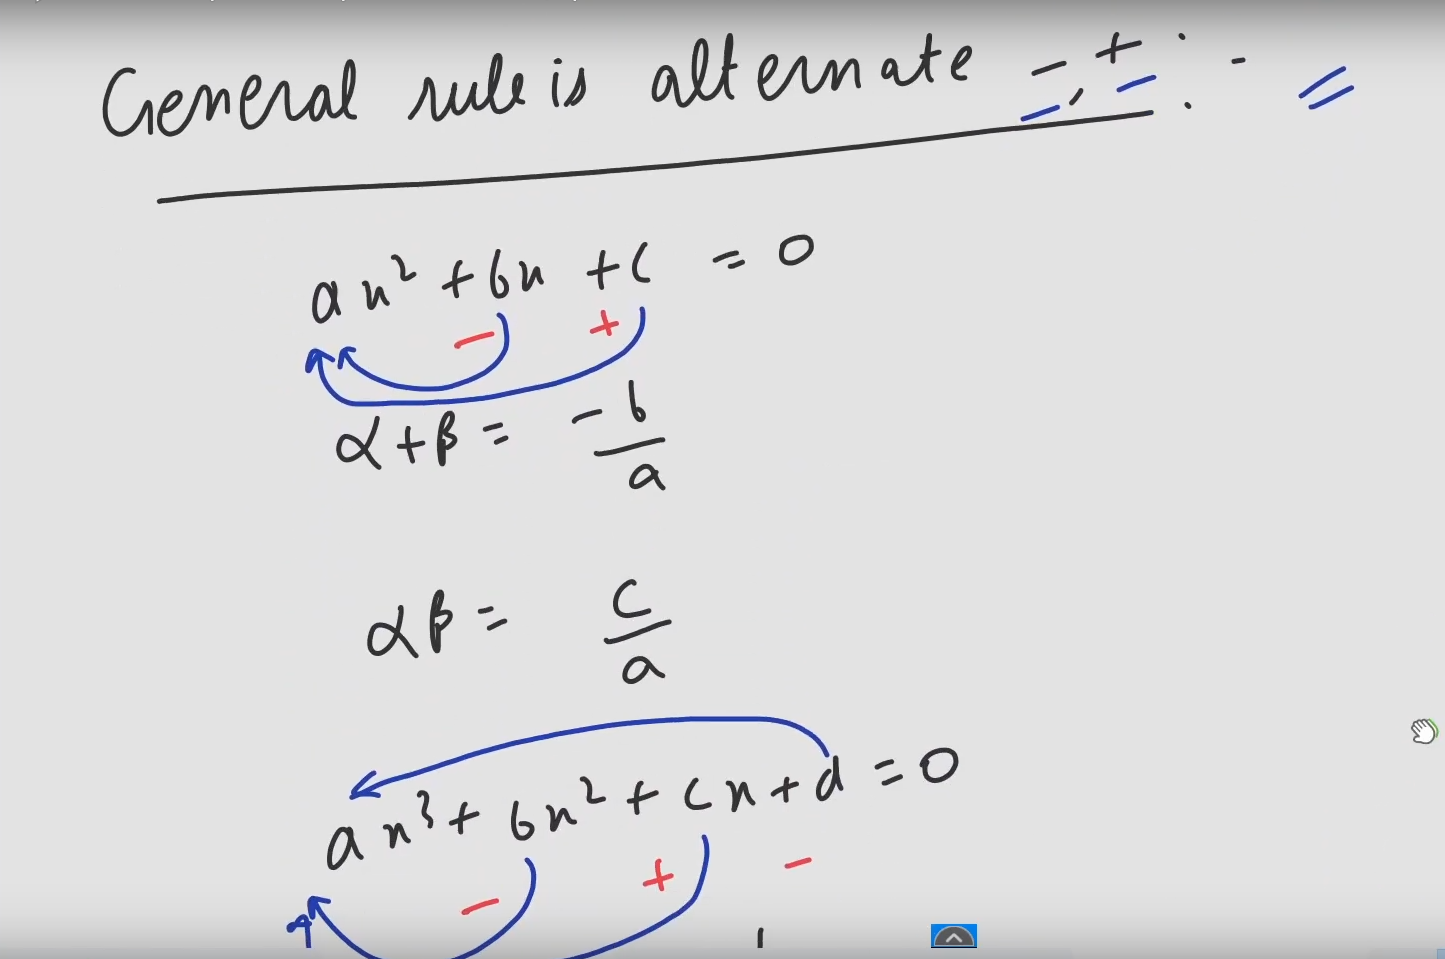 General rule is alternate -, + : -
ax² + bx + c = 0
- +
α + β = -b/a
αβ = c/a
ax³ + bx² + cx + d = 0
- + -